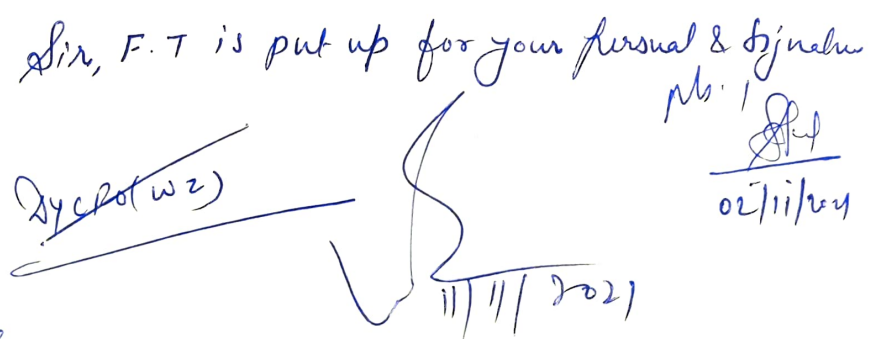 Sir, F.T is put up for your persual & signature
pls.
02/11/2021
Dy CPO(WZ)
11/11/2021